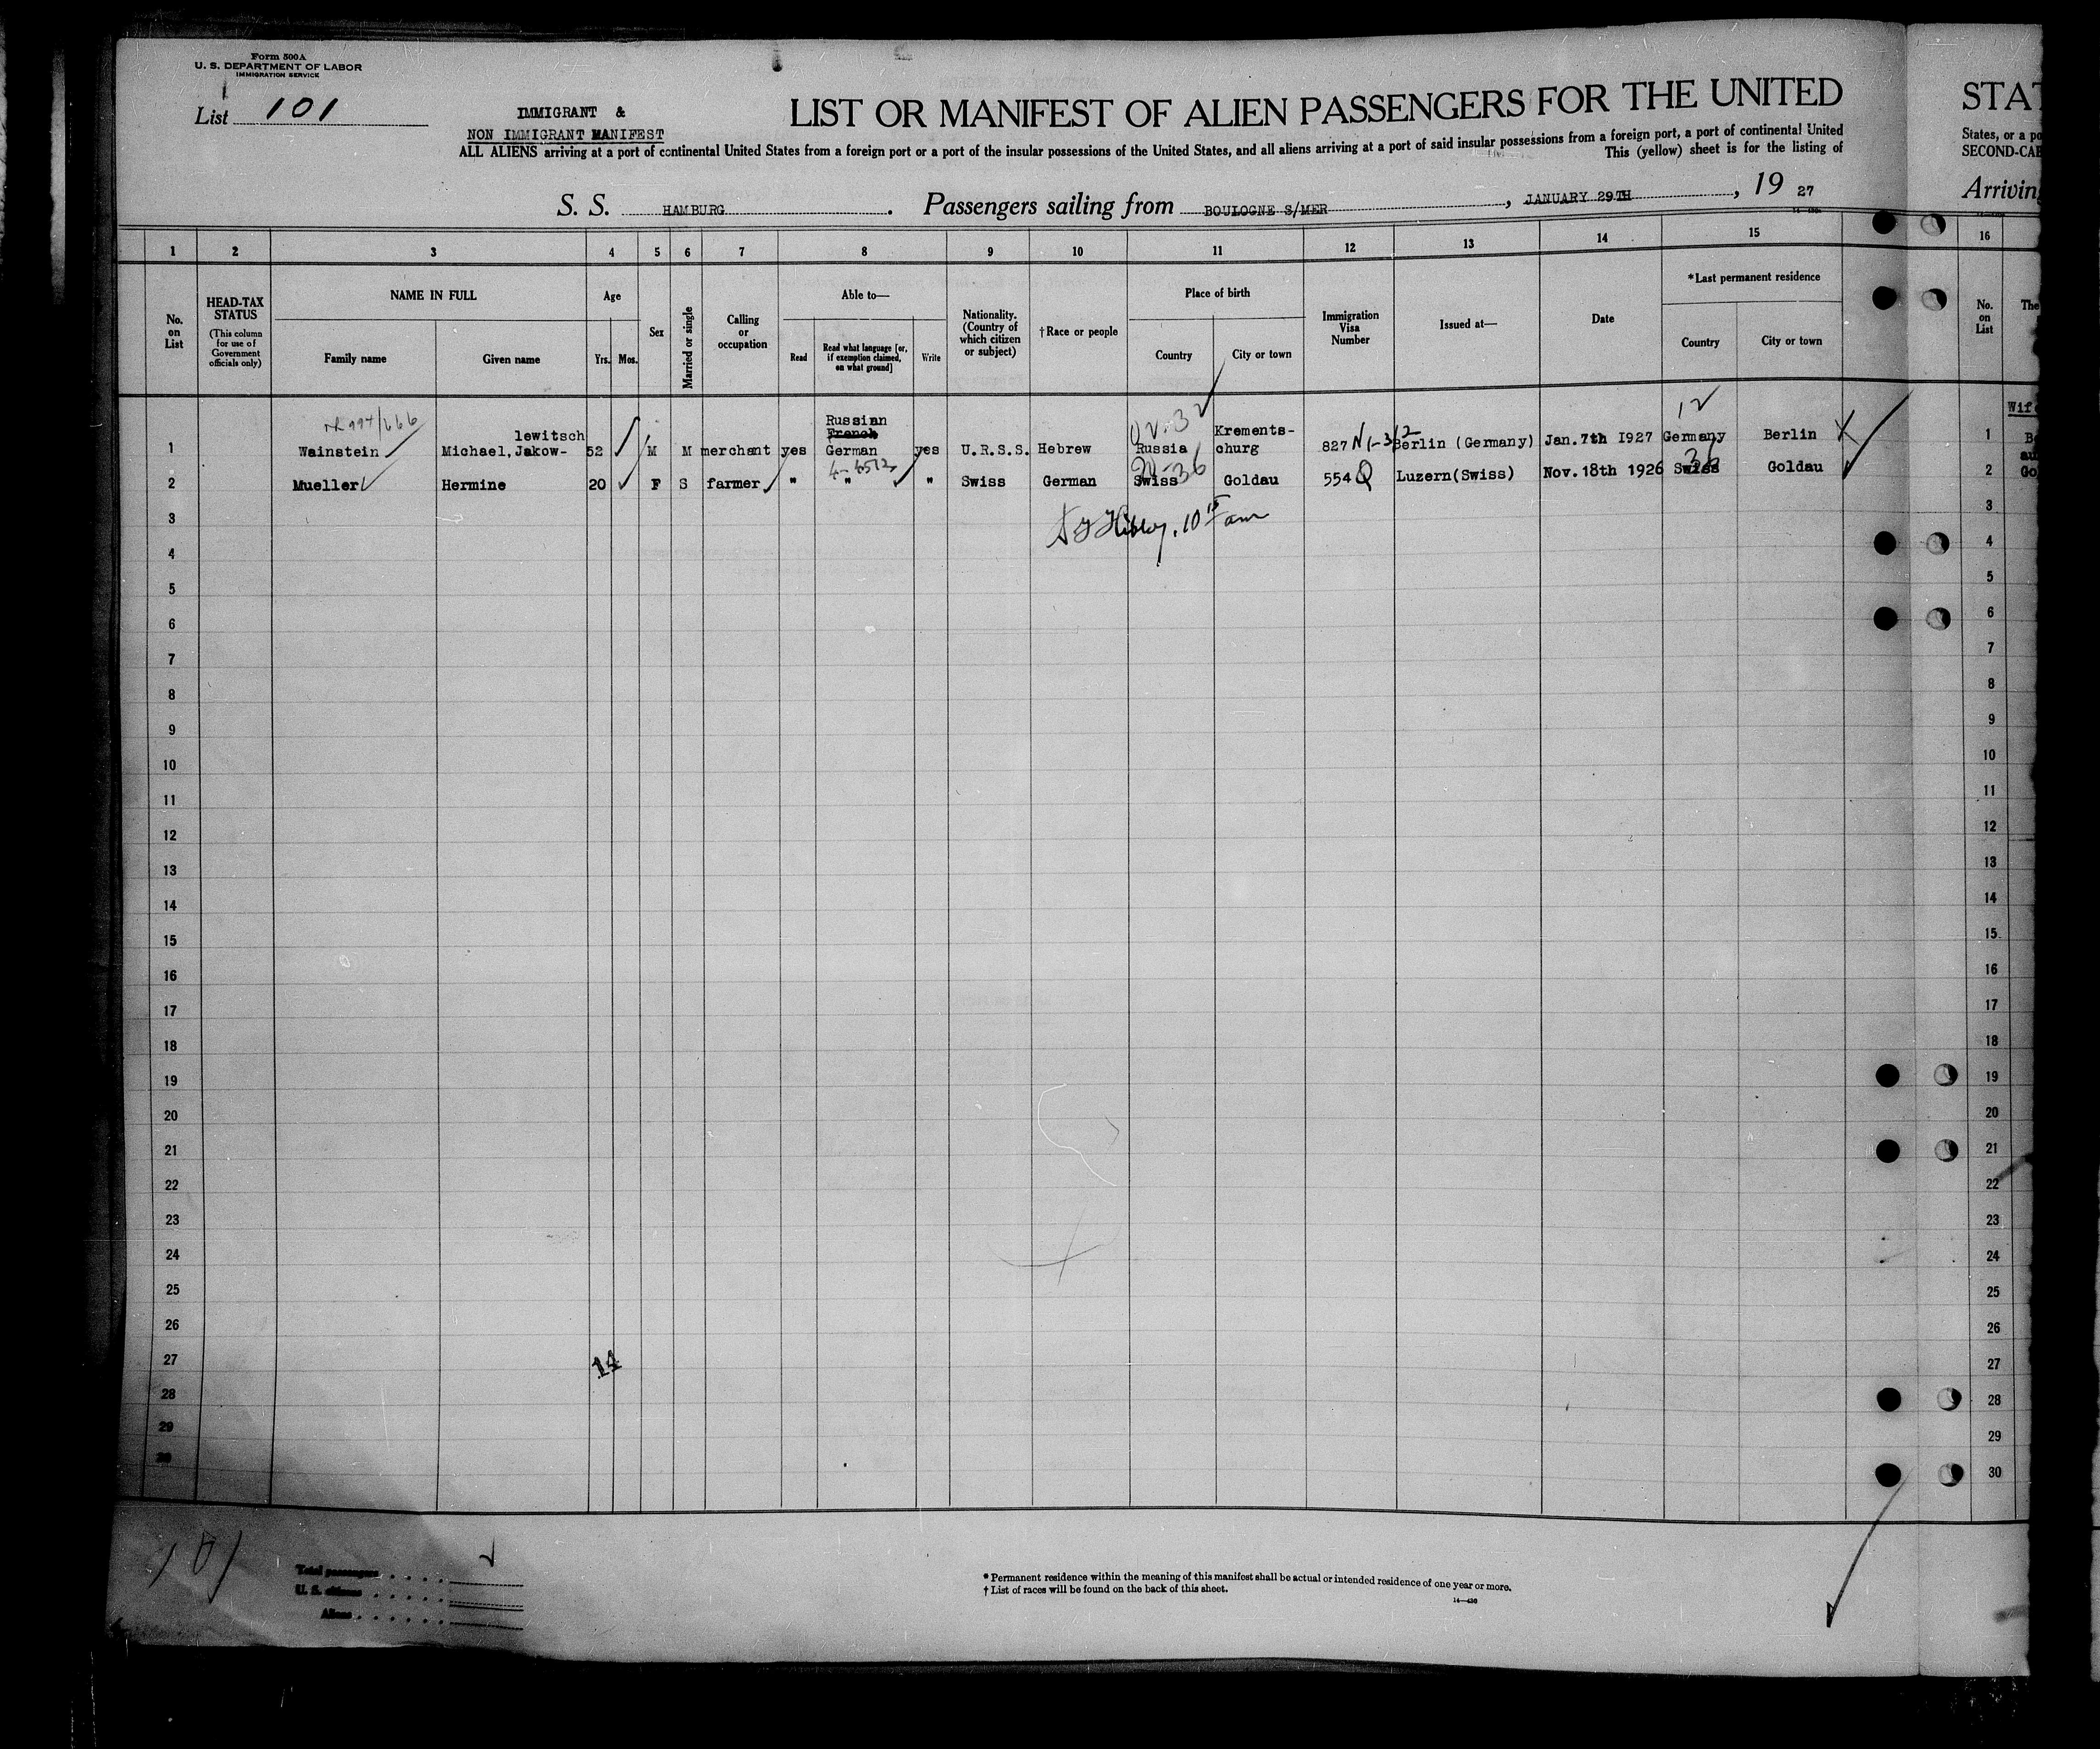 Form 500A
U. S. DEPARTMENT OF LABOR
IMMIGRATION SERVICE
List 101
IMMIGRANT &
NON IMMIGRANT MANIFEST
LIST OR MANIFEST OF ALIEN PASSENGERS FOR THE UNITED
ALL ALIENS arriving at a port of continental United States from a foreign port or a port of the insular possessions of the United States, and all aliens arriving at a port of said insular possessions from a foreign port, a port of continental United
This (yellow) sheet is for the listing of
S. S. HAMBURG. Passengers sailing from BOULOGNE S/MER, JANUARY 29TH, 19 27
STAT
States, or a po
SECOND-CAB
Arriving
1 2 3 4 5 6 7 8 9 10 11 12 13 14 15 16
No. on List
HEAD-TAX STATUS
(This column for use of Government officials only)
NAME IN FULL
Family name Given name
Age
Yrs. Mos.
Sex
Married or single
Calling or occupation
Able to—
Read
Read what language [or, if exemption claimed, on what ground]
Write
Nationality. (Country of which citizen or subject)
†Race or people
Place of birth
Country City or town
Immigration Visa Number
Issued at—
Date
*Last permanent residence
Country City or town
No. on List
The
12
Russian
French
lewitsch Krements-
1 Wainstein Michael, Jakow- 52 M M merchant yes German yes U.R.S.S. Hebrew Russia churg 827 Berlin (Germany) Jan. 7th 1927 Germany Berlin 1
2 Mueller Hermine 20 F S farmer " " " Swiss German Swiss Goldau 554 Q Luzern(Swiss) Nov. 18th 1926 Swiss Goldau 2
36
Wife
Go
3 3
4 4
5 5
6 6
7 7
8 8
9 9
10 10
11 11
12 12
13 13
14 14
15 15
16 16
17 17
18 18
19 19
20 20
21 21
22 22
23 23
24 24
25 25
26 26
27 14 27
28 28
29 29
30 30
101
Total passengers
U. S. citizens
Aliens
* Permanent residence within the meaning of this manifest shall be actual or intended residence of one year or more.
† List of races will be found on the back of this sheet.
14—430